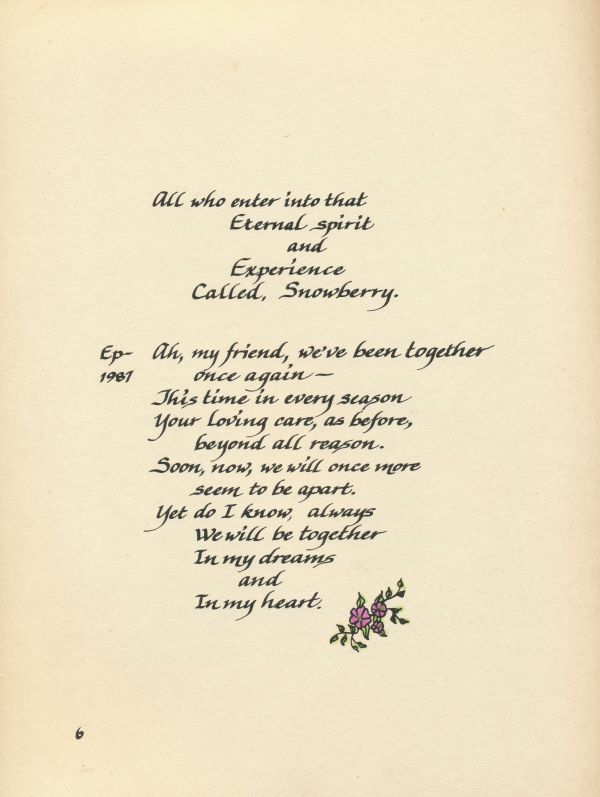 All who enter into that
Eternal spirit
and
Experience
Called, Snowberry.
Ep- Ah, my friend, we've been together
1987 once again —
This time in every season
Your loving care, as before,
beyond all reason.
Soon, now, we will once more
seem to be apart.
Yet do I know, always
We will be together
In my dreams
and
In my heart.
6